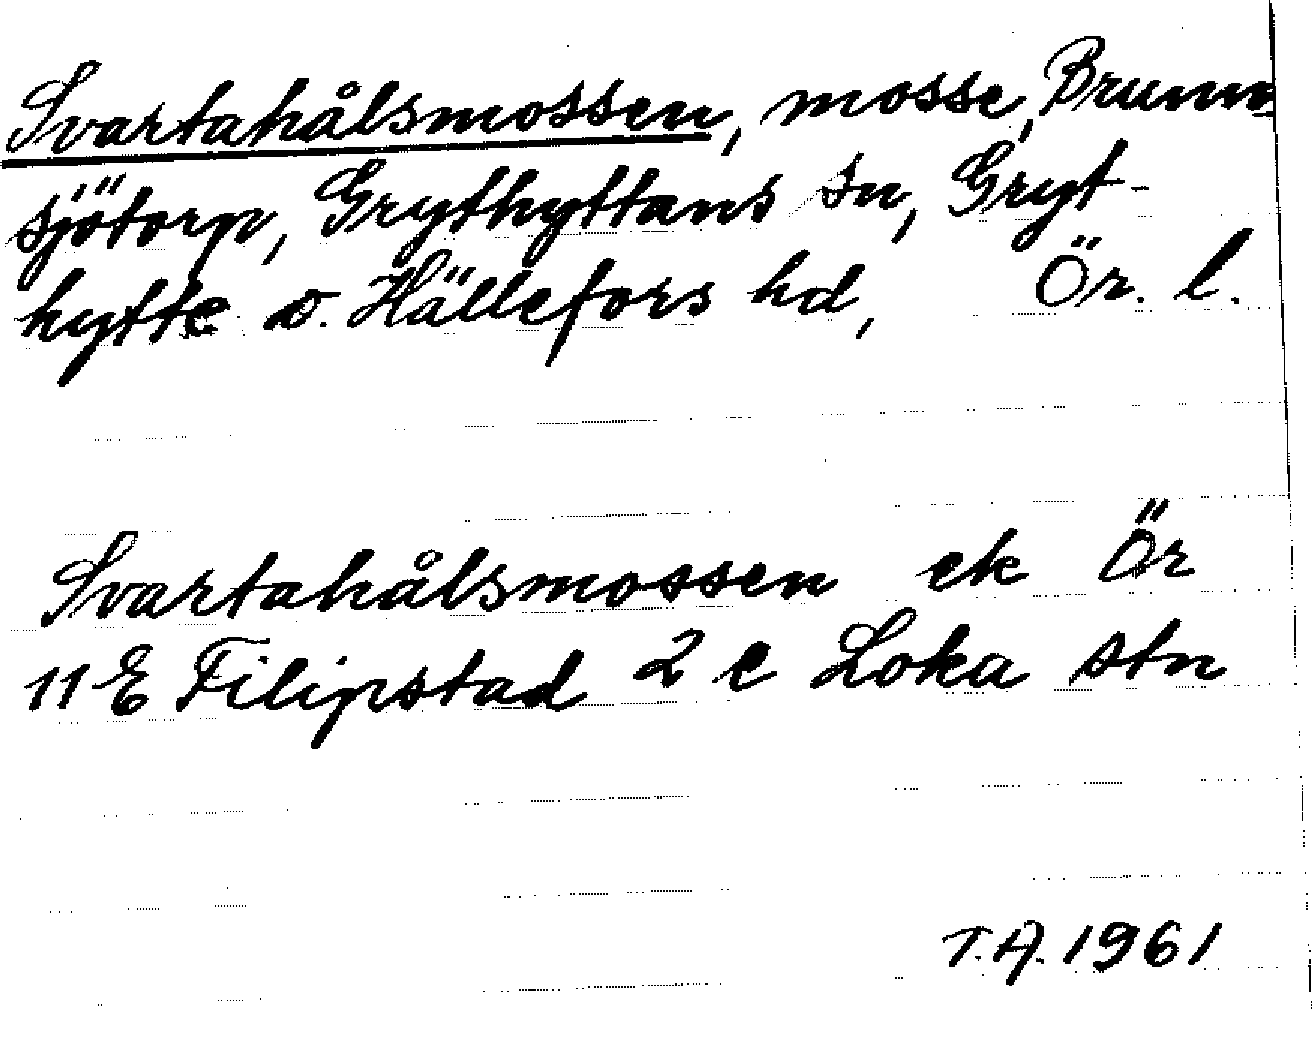 Svartahålsmossen, mosse, Brunn-
sjötorp, Grythyttans sn, Gryt-
hytte o. Hällefors hd, Ör. l.
Svartahålsmossen ek Ör
11 E Filipstad 2 e Loka stn
T.A. 1961